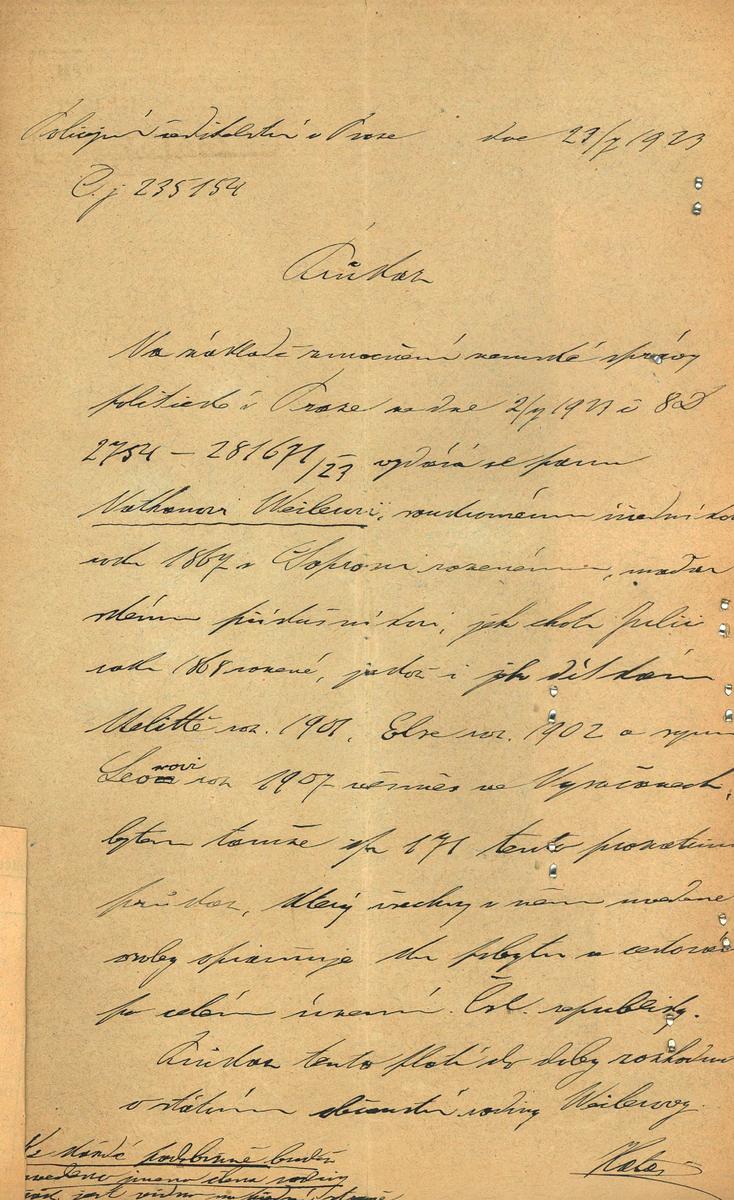 Policejní ředitelství v Praze dne 23/7 1923
Č.j. 235154
Průkaz
Na základě zmocnění zemské správy
politické v Praze ze dne 2/7 1923 č 8D
2754 – 281671/23 vydává se panu
Nathanovi Weilerovi, soukromému úředníkovi
roku 1867 v Soproni rozenému, maďar
skému příslušníkovi, jeho choti Julii
roku 1868 rozené, jakož i jeho dítkám
Melittě roz. 1901, Else roz. 1902 a synu
Leonovi roz 1907 vesměs ve Vysočanech,
bytem tamže čp 171 tento prozatímní
průkaz, který všechny v něm uvedené
osoby opravňuje ku pobytu a cestování
po celém území Čsl. republiky.
Průkaz tento platí do doby rozhodnutí
o státním občanství rodiny Weilerovy.
podobizně budiž
uvedeno jméno člena rodiny